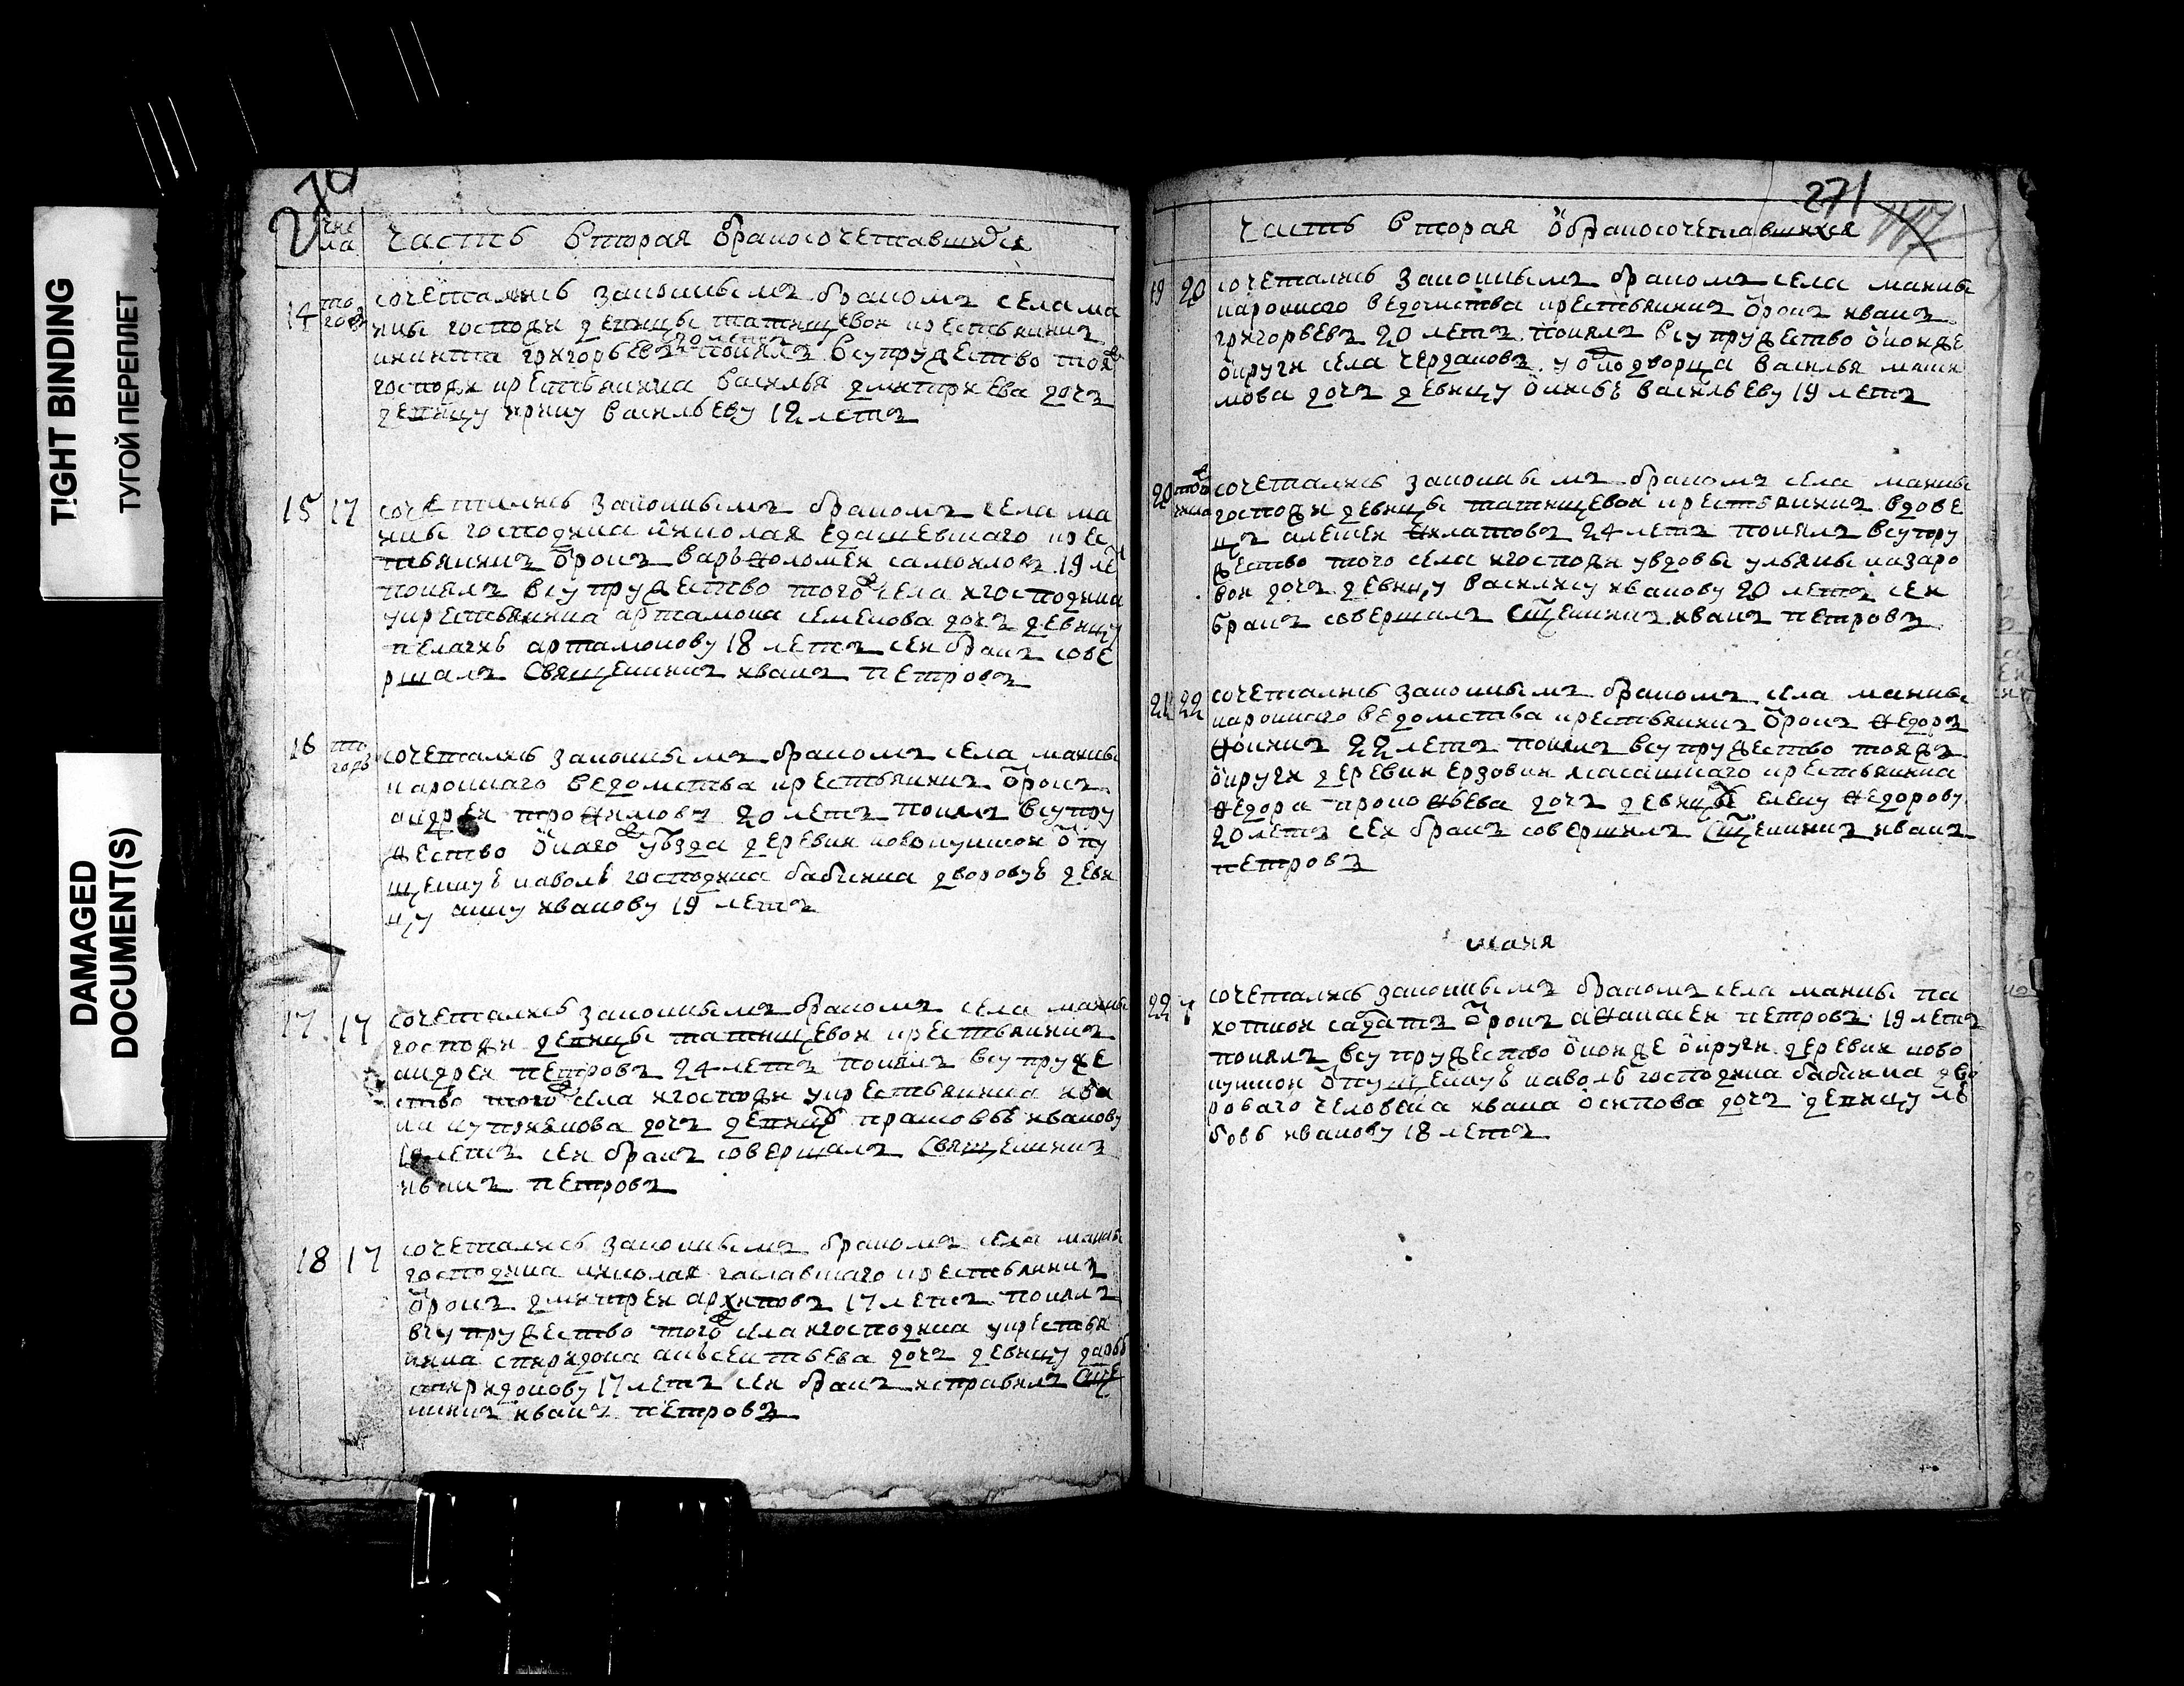 TIGHT BINDING
ТУГОЙ ПЕРЕПЛЕТ
DAMAGED
DOCUMENT(S)
270
чис
ла
Часть вторая обракосочетавшихся
14
то
гож
сочетались законнымъ бракомъ села ма
ины господжи девицы татищевой крестьянинъ
20 летъ
никита григорьевъ понялъ всупружество тояж
господжи крестьянина василья дмитриева дочь
девицу ирину васильеву 12 летъ
15 17
сочетались законнымъ бракомъ села ма
ины господина николая крес
тьянинъ отрокъ варѳоломей самойловъ 19 ле
понялъ всупружество тогож села игосподина
укрестьянина артамона семенова дочь девицу
пелагею артамонову 18 летъ сей бракъ сове
ршалъ священникъ иванъ петровъ
16
то
гожь
сочетались законнымъ бракомъ села маины
коронного ведомства крестьянинъ отрокъ
андрей троѳимовъ 20 летъ понялъ всупру
жество онагож уѣзда деревни отпу
щенную наволю господина бабкина дворовую деви
цу анну иванову 19 летъ
17 17
сочетались законнымъ бракомъ села маины
господжи девицы татищевой крестьянинъ
андрей петровъ 24 летъ понялъ всупруже
ство тогож села игосподжи укрестьянина ива
на куприянова дочь девицу прасковью иванову
летъ сей бракъ совершалъ священникъ
иванъ петровъ
18 17
сочетались законнымъ бракомъ села маины
господина николая крестьянинъ
отрокъ дмитрей архиповъ 17 летъ понялъ
всупружество тогож села игосподина укрестья
нина спиридона дочь девицу дарью
спиридонову 17 летъ сей бракъ исправилъ свще
нникъ иванъ петровъ
271
Часть вторая обракосочетавшихся
19 20
сочетались законнымъ бракомъ села маины
коронного ведомства крестьянинъ отрокъ иванъ
григорьевъ 20 летъ понялъ всупружество онойже
округи села чердаковъ уоднодворца василья макси
мова дочь девицу васильеву 19 летъ
20
тогож
числа
сочетались законнымъ бракомъ села маины
господжи девицы татищевой крестьянинъ вдове
цъ алексей ѳилатовъ 24 летъ понялъ всупру
жество того села игосподжи увдовы ульяны назаро
вой дочь девицу василису иванову 20 летъ сей
бракъ совершалъ свщенникъ иванъ петровъ
21 22
сочетались законнымъ бракомъ села маины
коронного ведомства крестьянинъ отрокъ ѳедоръ
ѳоминъ 22 летъ понялъ всупружество тояжъ
округи деревни ерзовки ясашнаго крестьянина
ѳедора прокоѳьева дочь девицу елену ѳедорову
20 летъ сей бракъ совершилъ свщенникъ иванъ
петровъ
маия
22 7
сочетались законнымъ бракомъ села маины па
хотной салдатъ отрокъ аѳанасей петровъ 19 летъ
понялъ всупружество онойже округи деревни
отпущенную наволю господина бабкина дво
роваго человека ивана осипова дочь девицу лю
бовь иванову 18 летъ